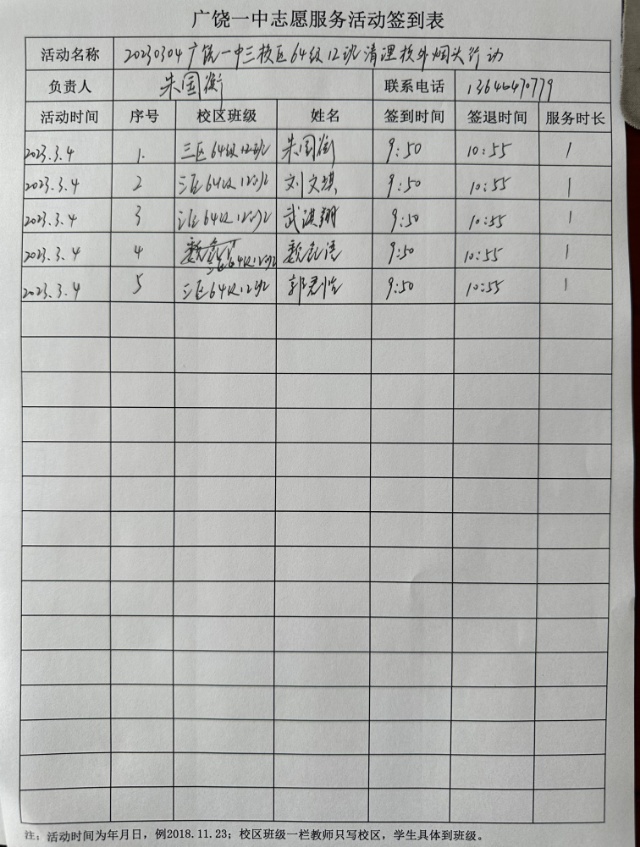 广饶一中志愿服务活动签到表
活动名称 20230304广饶一中三校区64级12班清理校外烟头行动
负责人 朱国衡 联系电话 13646470779
活动时间 序号 校区班级 姓名 签到时间 签退时间 服务时长
2023.3.4 1. 三区64级12班 朱国衡 9:50 10:55 1
2023.3.4 2 三区64级12班 刘文祺 9:50 10:55 1
2023.3.4 3 三区64级12班 武 9:50 10:55 1
2023.3.4 4 三区64级12班 魏 9:50 10:55 1
2023.3.4 5 三区64级12班 郭君怡 9:50 10:55 1
注：活动时间为年月日，例2018.11.23；校区班级一栏教师只写校区，学生具体到班级。